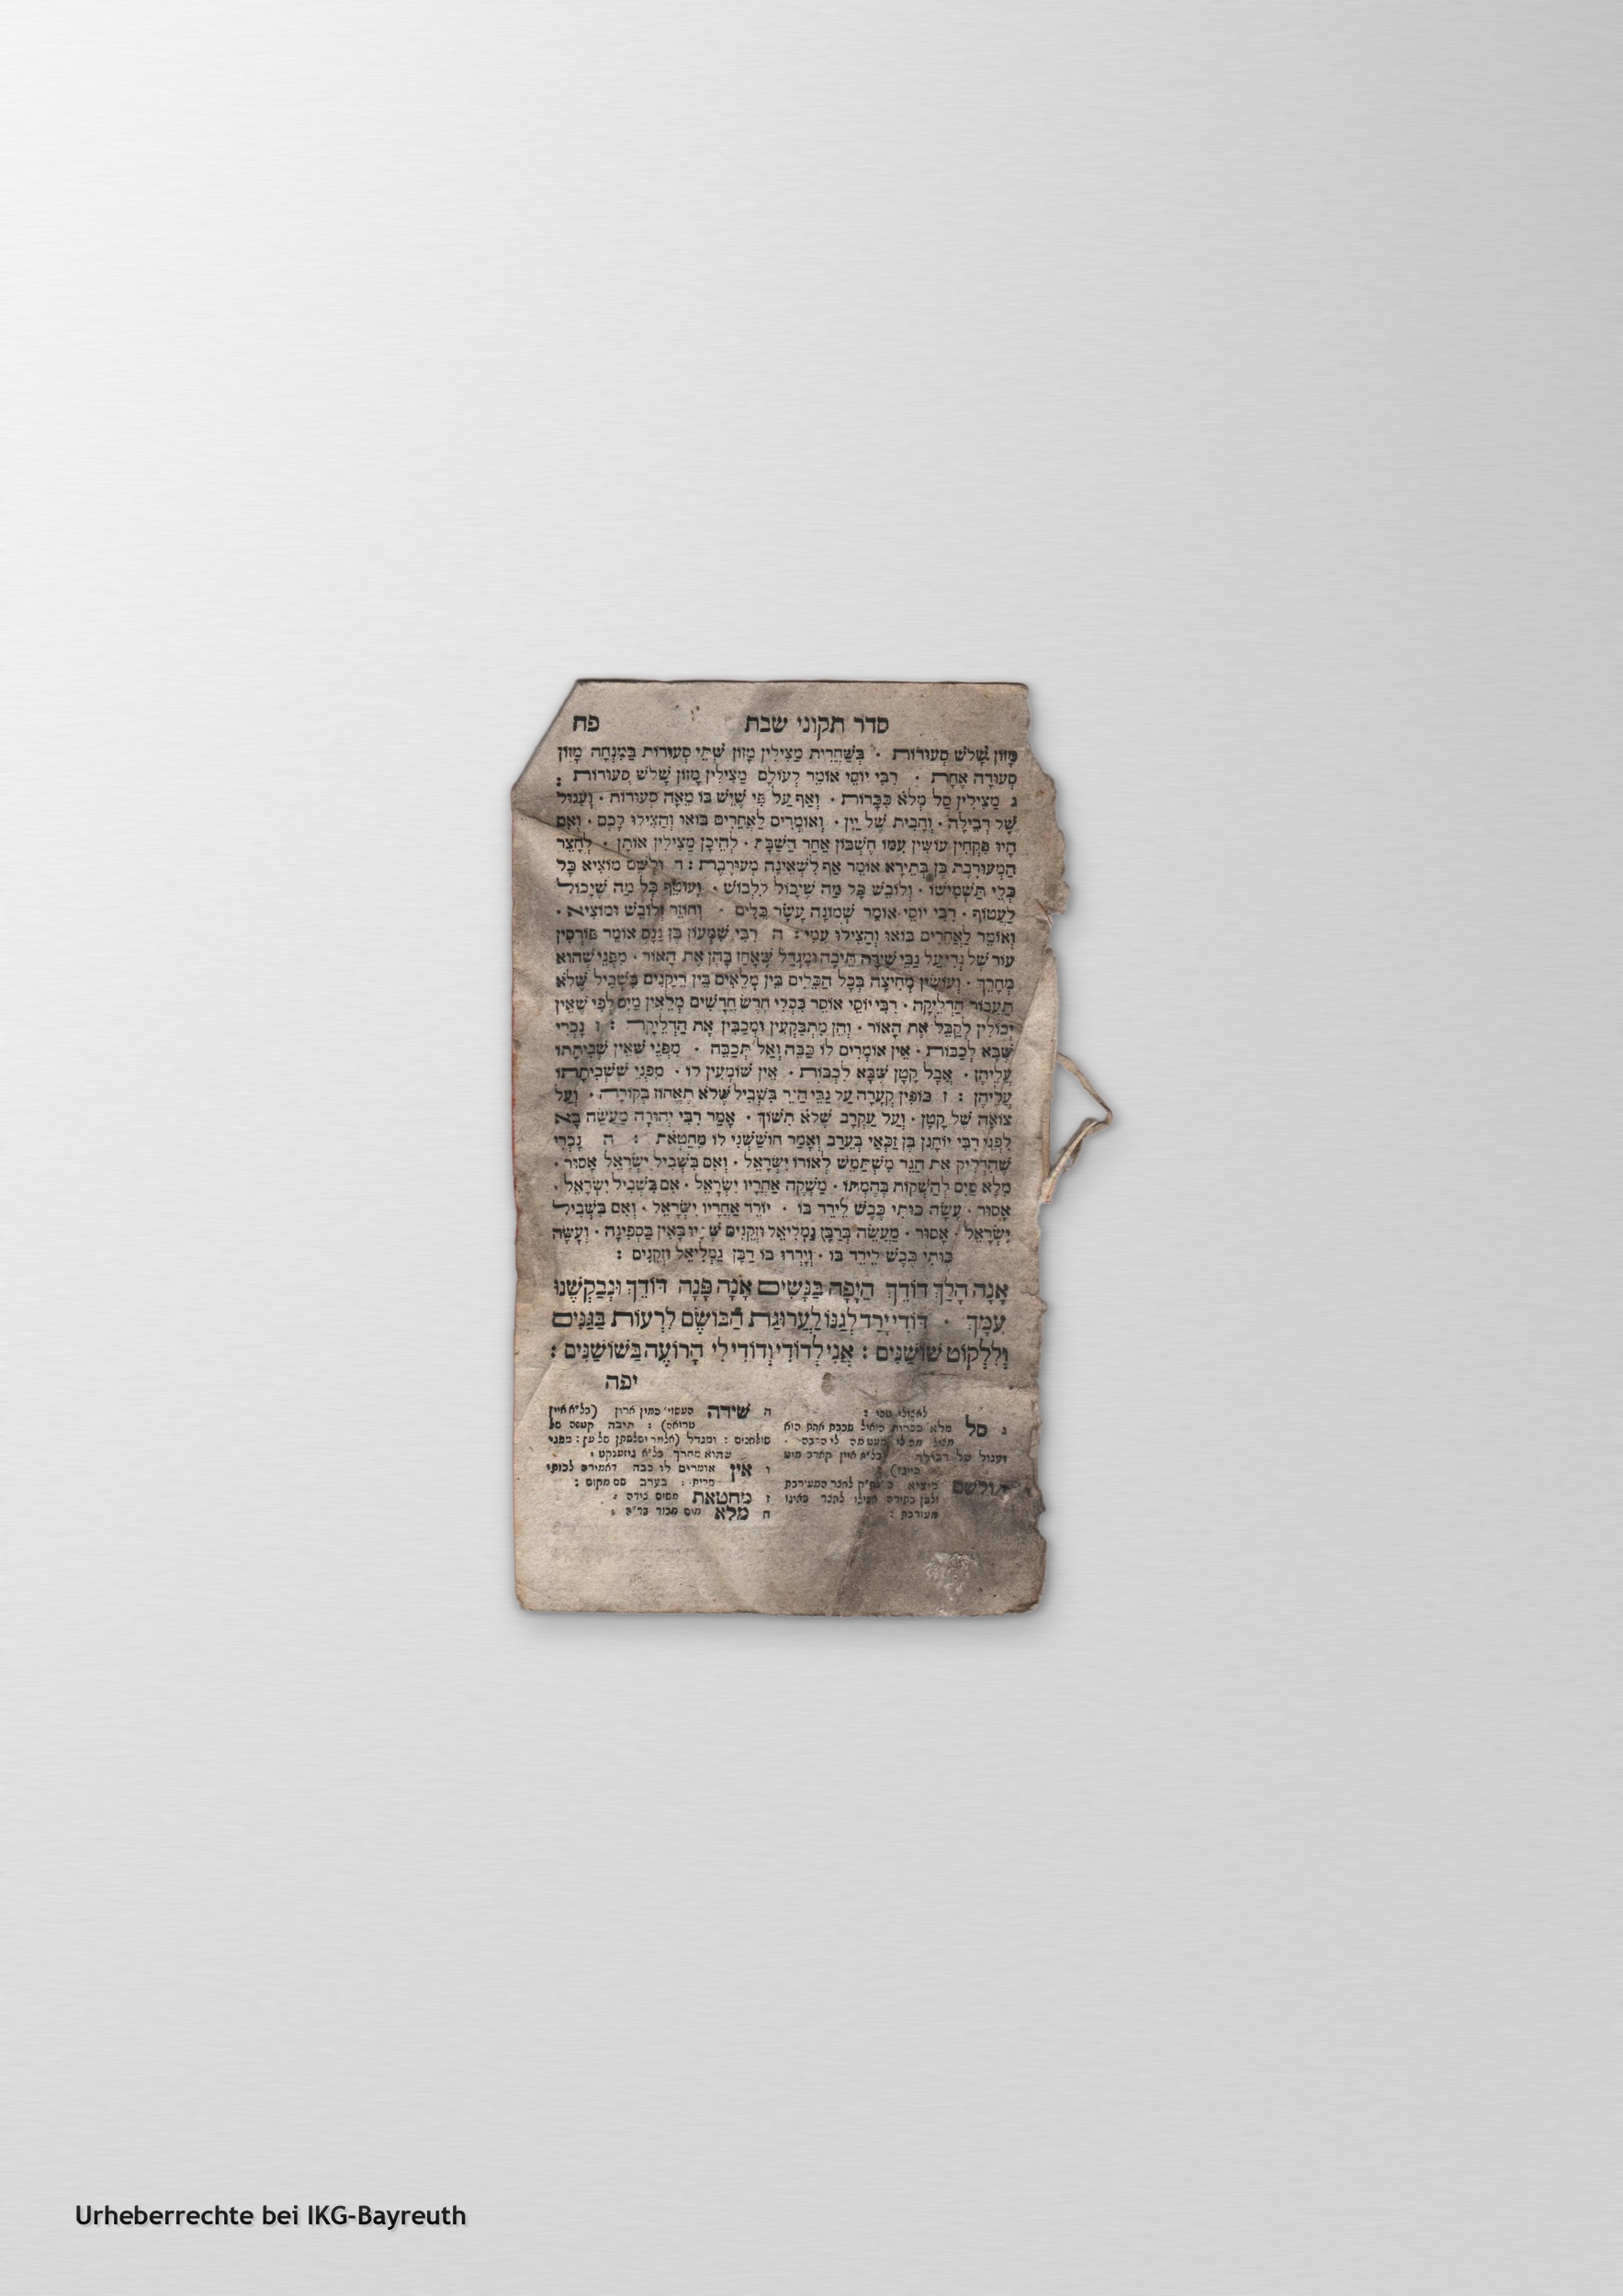 סדר תקוני שבת פח
מָזוֹן שָׁלֹשׁ סְעוּדוֹת · בְּשַׁחֲרִית מַצִּילִין מָזוֹן שְׁתֵּי סְעוּדוֹת בַּמִּנְחָה מָזוֹן
סְעוּדָה אֶחָת · רַבִּי יוֹסֵי אוֹמֵר לְעוֹלָם מַצִּילִין מָזוֹן שָׁלֹשׁ סְעוּדוֹת :
ג מַצִּילִין סַל מָלֵא כִּכָּרוֹת · וְאַף עַל פִּי שֶׁיֵּשׁ בּוֹ מֵאָה סְעוּדוֹת · וְעִגּוּל
שֶׁל דְּבֵילָה · וְחָבִית שֶׁל יַיִן · וְאוֹמְרִים לַאֲחֵרִים בּוֹאוּ וְהַצִּילוּ לָכֶם · וְאִם
הָיוּ פִּקְחִין עוֹשִׂין עִמּוֹ חֶשְׁבּוֹן אַחַר הַשַּׁבָּת · לְהֵיכָן מַצִּילִין אוֹתָן · לְחָצֵר
הַמְעוּרֶבֶת בֶּן בְּתֵירָא אוֹמֵר אַף לְשֶׁאֵינָהּ מְעוּרֶבֶת : ד וּלְשָׁם מוֹצִיא כָּל
כְּלֵי תַשְׁמִישׁוֹ · וְלוֹבֵשׁ כָּל מַה שֶׁיָּכוֹל לִלְבּוֹשׁ · וְעוֹטֵף כָּל מַה שֶׁיָּכוֹל
לַעֲטוֹף · רַבִּי יוֹסֵי אוֹמֵר שְׁמוֹנָה עָשָׂר כֵּלִים · וְחוֹזֵר וְלוֹבֵשׁ וּמוֹצִיא ·
וְאוֹמֵר לַאֲחֵרִים בּוֹאוּ וְהַצִּילוּ עִמִּי : ה רַבִּי שִׁמְעוֹן בֶּן נַנָּס אוֹמֵר פּוֹרְסִין
עוֹר שֶׁל גְּדִי עַל גַּבֵּי שִׁידָּה תֵּיבָה וּמִגְדָּל שֶׁאָחַז בָּהֶן אֶת הָאוּר · מִפְּנֵי שֶׁהוּא
מְחָרֵךְ · וְעוֹשִׂין מְחִיצָה בְּכָל הַכֵּלִים בֵּין מְלֵאִים בֵּין רֵיקָנִים בִּשְׁבִיל שֶׁלֹּא
תַּעֲבוֹר הַדְּלֵיקָה · רַבִּי יוֹסֵי אוֹסֵר בִּכְלֵי חֶרֶשׂ חֲדָשִׁים מְלֵאִין מַיִם לְפִי שֶׁאֵין
יְכוֹלִין לְקַבֵּל אֶת הָאוּר · וְהֵן מִתְבַּקְּעִין וּמְכַבִּין אֶת הַדְּלֵיקָה : ו נָכְרִי
שֶׁבָּא לְכַבּוֹת · אֵין אוֹמְרִים לוֹ כַּבֵּה וְאַל תְּכַבֶּה · מִפְּנֵי שֶׁאֵין שְׁבִיתָתוֹ
עֲלֵיהֶן · אֲבָל קָטָן שֶׁבָּא לְכַבּוֹת · אֵין שׁוֹמְעִין לוֹ · מִפְּנֵי שֶׁשְּׁבִיתָתוֹ
עֲלֵיהֶן : ז כּוֹפִין קְעָרָה עַל גַּבֵּי הַנֵּר בִּשְׁבִיל שֶׁלֹּא תֶאֱחוֹז בְּקוֹרָה · וְעַל
צוֹאָה שֶׁל קָטָן · וְעַל עַקְרָב שֶׁלֹּא תִשּׁוֹךְ · אָמַר רַבִּי יְהוּדָה מַעֲשֶׂה בָּא
לִפְנֵי רַבִּי יוֹחָנָן בֶּן זַכַּאי בַּעֲרָב וְאָמַר חוֹשְׁשַׁנִי לוֹ מֵחַטָּאת : ח נָכְרִי
שֶׁהִדְלִיק אֶת הַנֵּר מִשְׁתַּמֵּשׁ לְאוֹרוֹ יִשְׂרָאֵל · וְאִם בִּשְׁבִיל יִשְׂרָאֵל אָסוּר ·
מִלֵּא מַיִם לְהַשְׁקוֹת בְּהֶמְתּוֹ · מַשְׁקֶה אַחֲרָיו יִשְׂרָאֵל · אִם בִּשְׁבִיל יִשְׂרָאֵל ·
אָסוּר · עָשָׂה כּוּתִי כֶּבֶשׁ לֵירֵד בּוֹ · יוֹרֵד אַחֲרָיו יִשְׂרָאֵל · וְאִם בִּשְׁבִיל
יִשְׂרָאֵל · אָסוּר · מַעֲשֶׂה בְּרַבָּן גַּמְלִיאֵל וּזְקֵנִים שֶׁהָיוּ בָּאִין בַּסְּפִינָה · וְעָשָׂה
כּוּתִי כֶּבֶשׁ לֵירֵד בּוֹ · וְיָרְדוּ בּוֹ רַבָּן גַּמְלִיאֵל וּזְקֵנִים :
אָנָה הָלַךְ דּוֹדֵךְ הַיָּפָה בַּנָּשִׁים אָנָה פָּנָה דוֹדֵךְ וּנְבַקְשֶׁנּוּ
עִמָּךְ · דּוֹדִי יָרַד לְגַנּוֹ לַעֲרוּגַת הַבּוֹשֶׂם לִרְעוֹת בַּגַּנִּים
וְלִלְקוֹט שׁוֹשַׁנִּים : אֲנִי לְדוֹדִי וְדוֹדִי לִי הָרוֹעֶה בַּשּׁוֹשַׁנִּים :
יפה
ג סל מלא ככרות הואיל
ועגול של דבילה
ולשם
מעורבת :
ה שידה העשוי' כמין ארון
תיבה קטנה
ומגדל
שהוא מחרך
ו אין אומרים לו כבה
ז מחטאת
ח מלא מים מבור
Urheberrechte bei IKG-Bayreuth